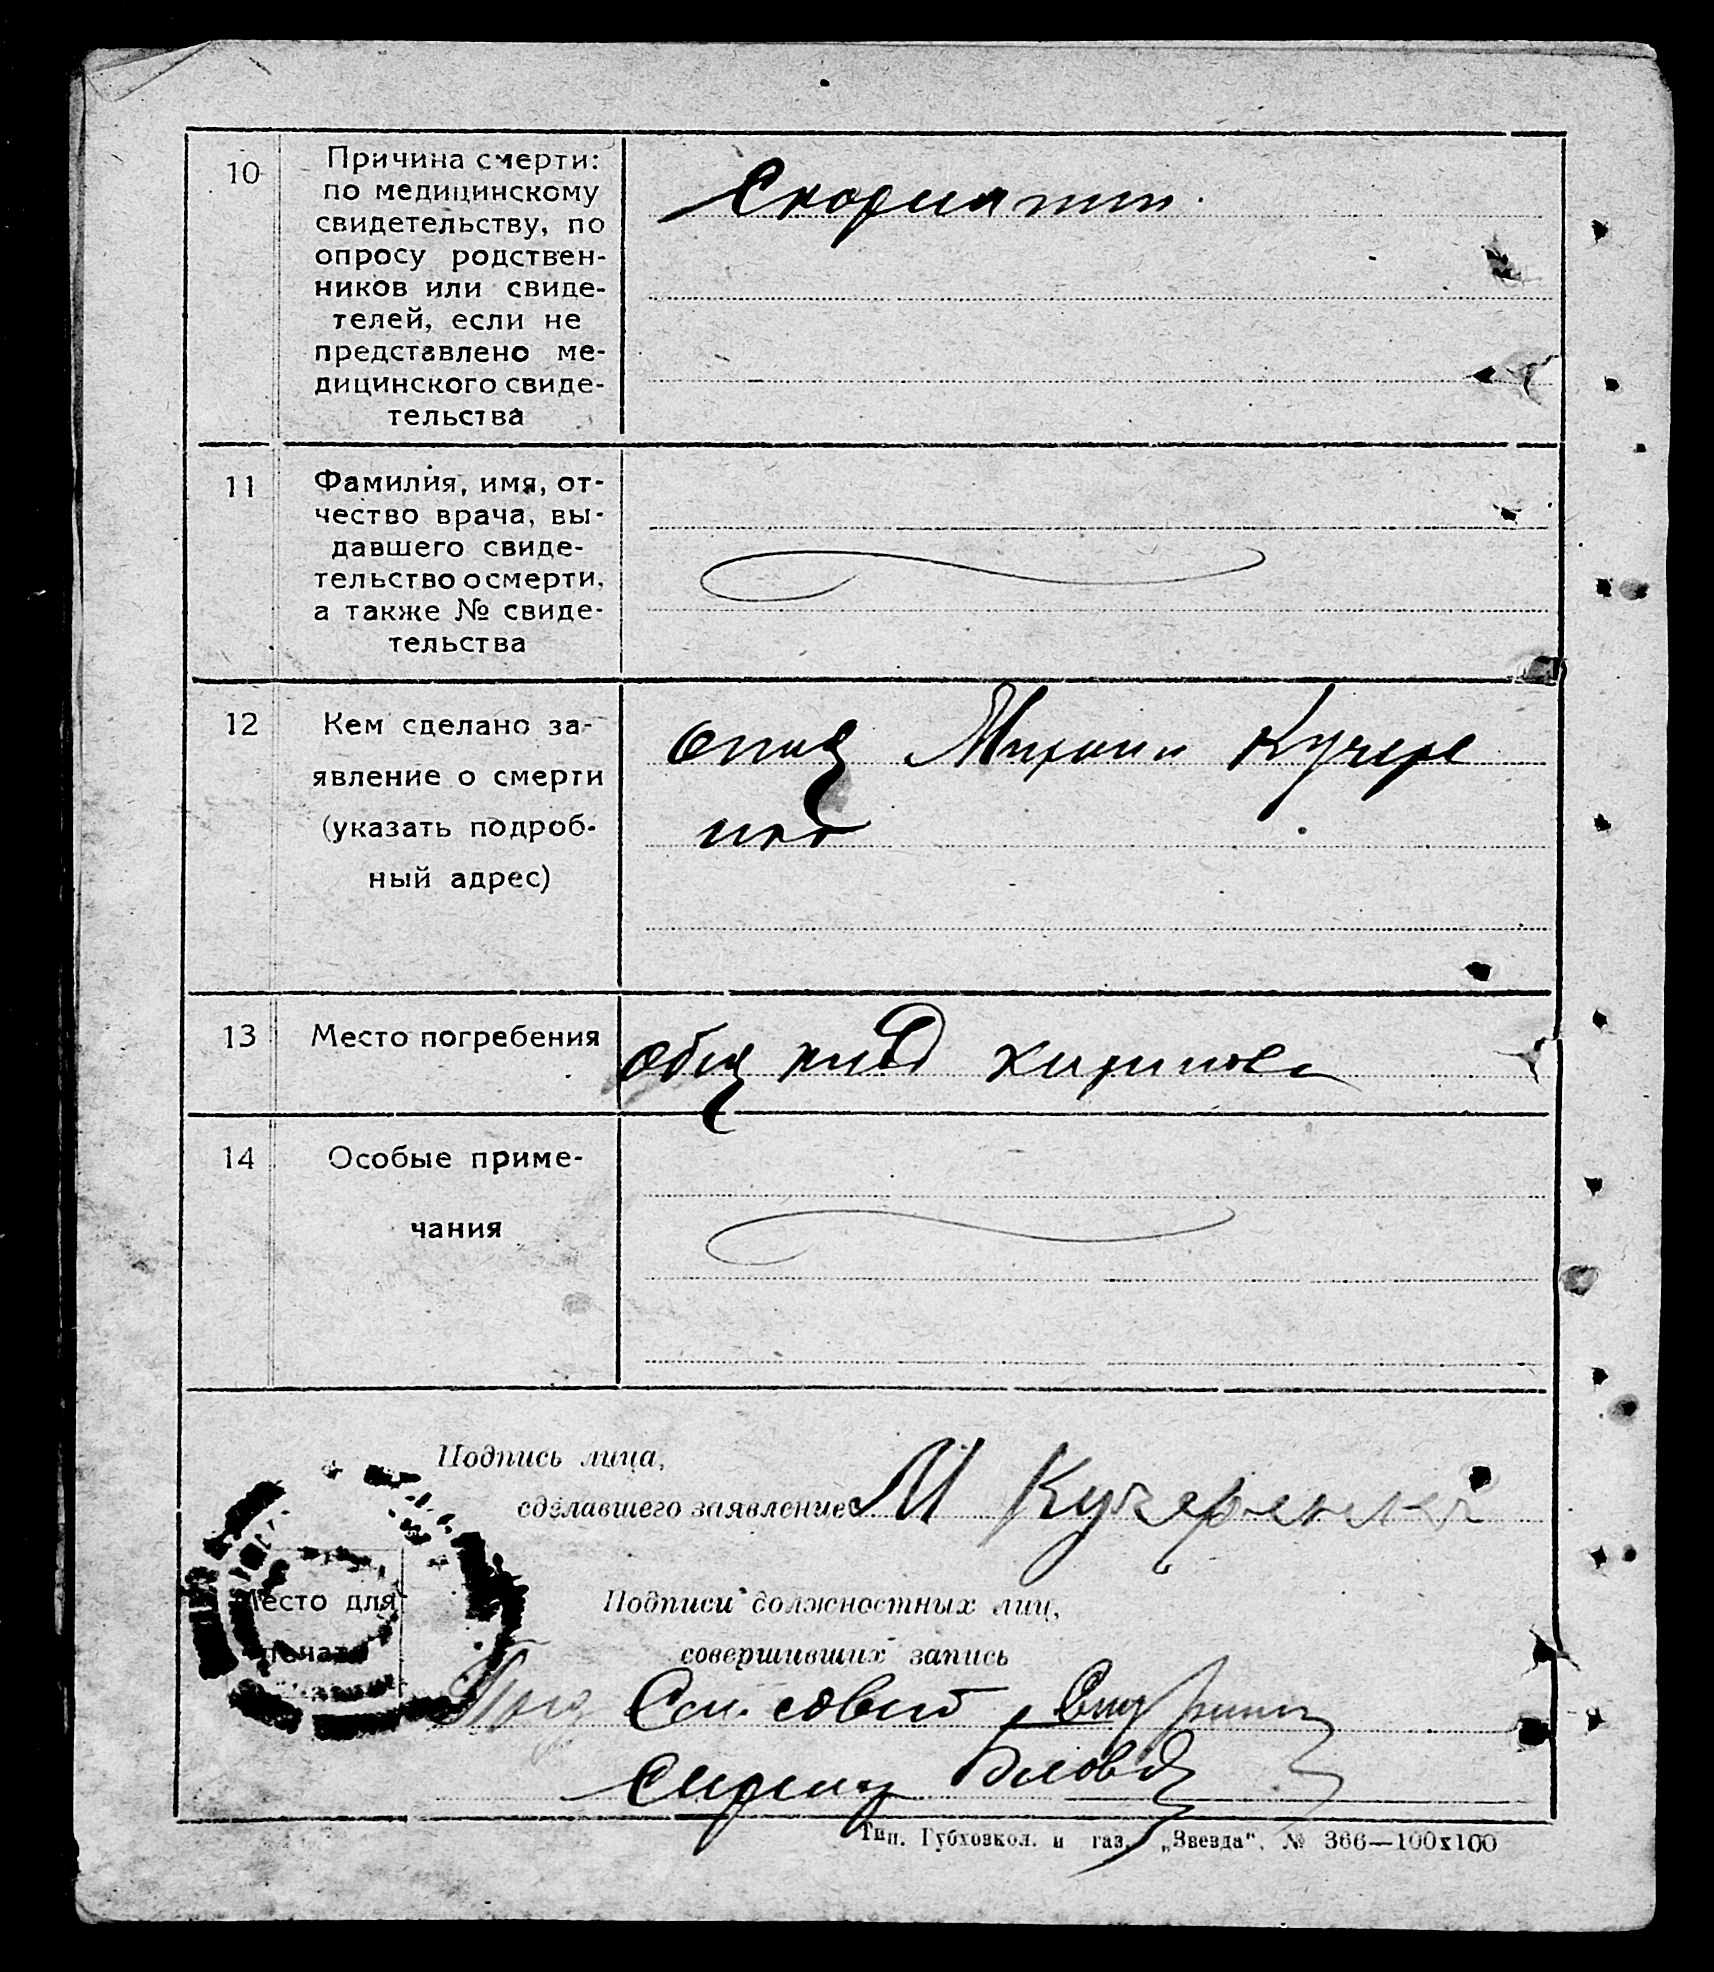 10
Причина смерти:
по медицинскому
свидетельству, по
опросу родствен-
ников или свиде-
телей, если не
представлено ме-
дицинского свиде-
тельства
Скорлатин
11
Фамилия, имя, от-
чество врача, вы-
давшего свиде-
тельство о смерти,
а также № свиде-
тельства
12
Кем сделано за-
явление о смерти
(указать подроб-
ный адрес)
отец Михаил Кучере
нко
13
Место погребения
общ
14
Особые приме-
чания
Подпись лица,
сделавшего заявление М Кучеренко
Место для
печати
Подписи должностных лиц,
совершивших запись
Пред Сел. совета
Тип. Губхозкол. и газ. „Звезда“. № 366—100х100